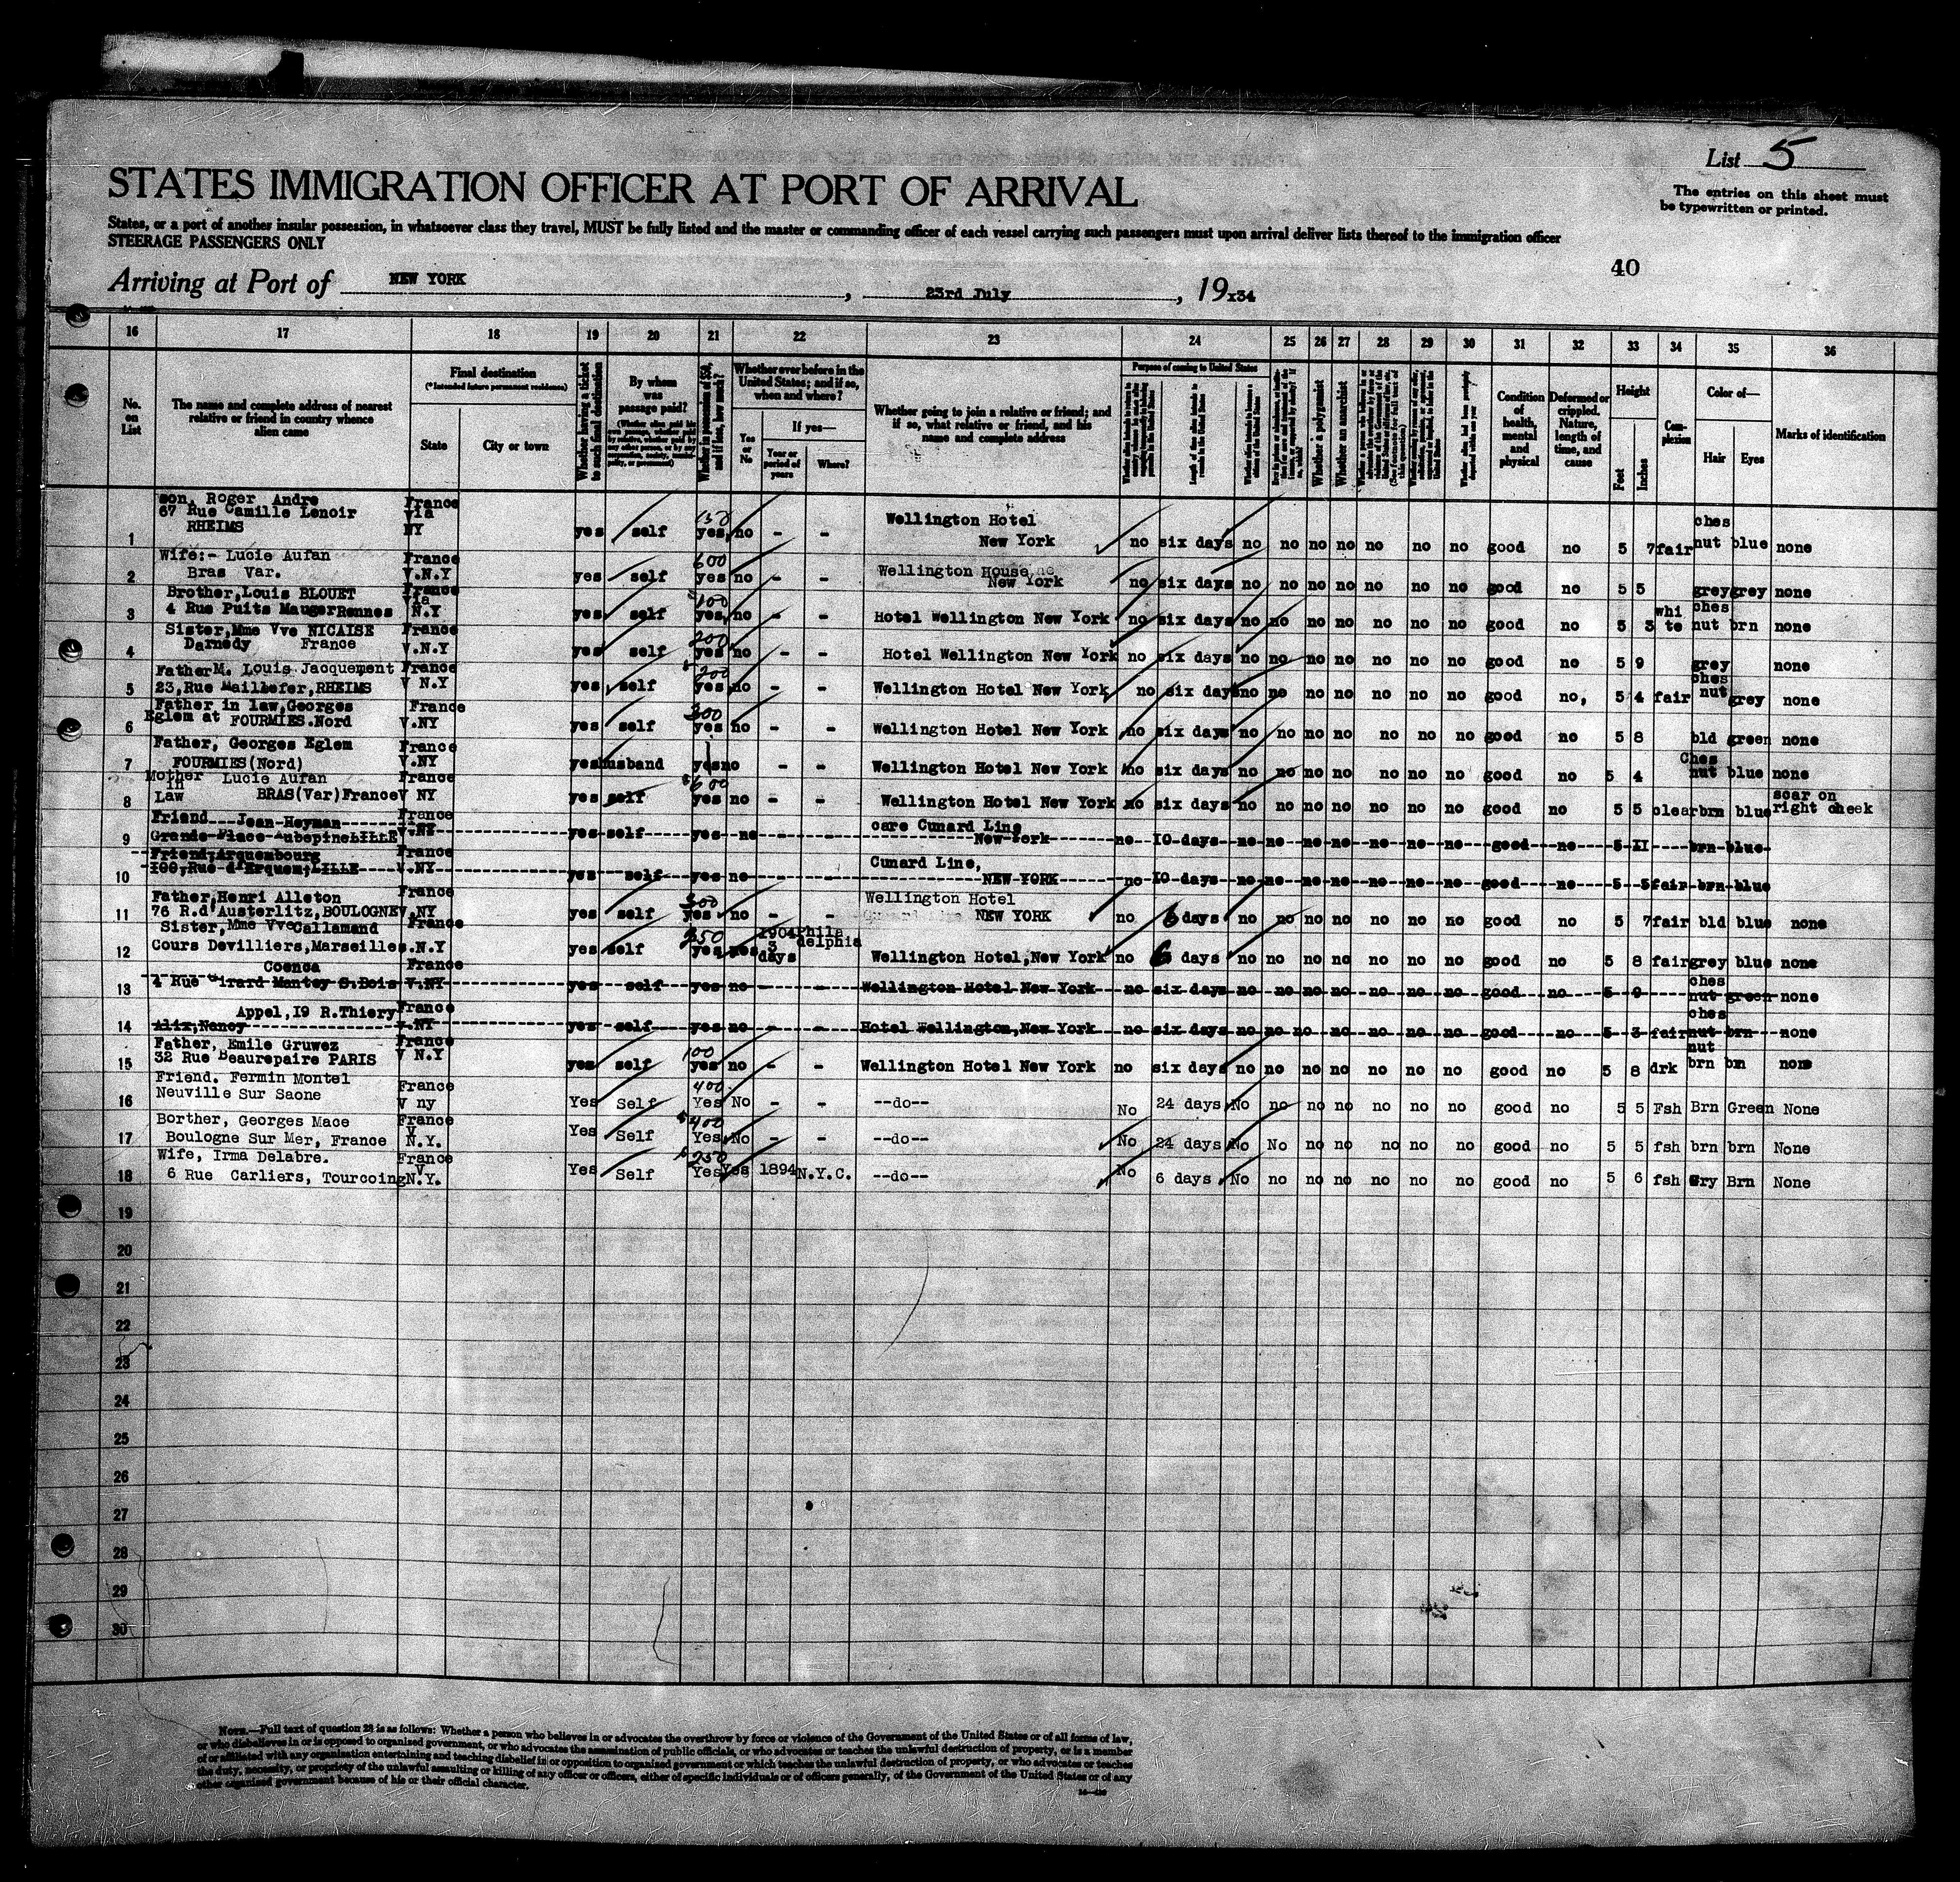 List 5
The entries on this sheet must
be typewritten or printed.
STATES IMMIGRATION OFFICER AT PORT OF ARRIVAL
States, or a port of another insular possession, in whatsoever class they travel, MUST be fully listed and the master or commanding officer of each vessel carrying such passengers must upon arrival deliver lists thereof to the immigration officer
STEERAGE PASSENGERS ONLY
40
Arriving at Port of NEW YORK , 23rd July , 19x34
16 17 18 19 20 21 22 23 24 25 26 27 28 29 30 31 32 33 34 35 36
No. on List
The name and complete address of nearest relative or friend in country whence alien came
Final destination
(*Intended future permanent residence)
State
City or town
Whether having a ticket to such final destination
By whom was passage paid?
Whether in possession of $50, and if less, how much?
Whether ever before in the United States; and if so, when and where?
Yes or No
If yes—
Year or period of years
Where?
Whether going to join a relative or friend; and if so, what relative or friend, and his name and complete address
Purpose of coming to United States
Whether a polygamist
Whether an anarchist
Condition of health, mental and physical
Deformed or crippled. Nature, length of time, and cause
Height
Feet
Inches
Complexion
Color of—
Hair
Eyes
Marks of identification
son, Roger Andre France
67 Rue Camille Lenoir via 150 Wellington Hotel ches
1 RHEIMS NY yes self yes, no - - New York no six days no no no no no no no good no 5 7 fair nut blue none
Wife:- Lucie Aufan France 600 Wellington House
2 Bras Var. V.N.Y yes self yes no - - New York no six days no no no no no no no good no 5 5 grey grey none
Brother, Louis BLOUET France via 100 whi ches
3 4 Rue Puits Mauger Rennes N.Y yes self yes, no - - Hotel Wellington New York no six days no no no no no no no good no 5 3 te nut brn none
Sister, Mme Vve NICAISE France 200
4 Darnedy France V.N.Y yes self yes no - - Hotel Wellington New York no six days no no no no no no no good no 5 9 grey none
Father M. Louis Jacquement France 200 ches
5 23, Rue Maillefer, RHEIMS V N.Y yes self yes, no - - Wellington Hotel New York no six days no no no no no no no good no, 5 4 fair nut grey none
Father in law, Georges France 300
6 Eglem at FOURMIES. Nord V.NY yes self yes no - - Wellington Hotel New York no six days no no no no no no no good no 5 8 bld green none
Father, Georges Eglem France Ches
7 FOURMIES (Nord) V.NY yes husband yes no - - Wellington Hotel New York no six days no no no no no no no good no 5 4 nut blue none
Mother in Lucie Aufan France $600 scar on
8 Law BRAS (Var) France V NY yes self yes no - - Wellington Hotel New York no six days no no no no no no no good no 5 5 clear brn blue right cheek
Friend Jean Heyman France care Cunard Line
9 Grande Place Aubepine LILLE V.NY yes self yes no - - New York no 10 days no no no no no no no good no 5 11 brn blue
Friend, Arquembourg France Cunard Line,
10 100, Rue d'Arquem, LILLE V.NY yes self yes no NEW YORK no 10 days no no no no no no no good no 5 5 fair brn blue
Father, Henri Alleton France 300 Wellington Hotel
11 76 R.d'Austerlitz, BOULOGNE V.NY yes self yes no - - NEW YORK no 6 days no no no no no no no good no 5 7 fair bld blue none
Sister, Mme Vve Callamand France 350 1904 Phila
12 Cours Devilliers, Marseilles. N.Y yes self yes yes 3 days delphia Wellington Hotel, New York no 6 days no no no no no no no good no 5 8 fair grey blue none
Coenca France ches
13 4 Rue Girard Mantey S.Bois V.NY yes self yes no Wellington Hotel New York no six days no no no no no no no good no 5 9 nut green none
Appel, 19 R.Thiery France ches
14 Alix, Nancy V.NY yes self yes no - - Hotel Wellington, New York no six days no no no no no no no good no 5 3 fair nut brn none
Father, Emile Gruwez France 100 nut
15 32 Rue Beaurepaire PARIS V N.Y yes self yes no - - Wellington Hotel New York no six days no no no no no no no good no 5 8 drk brn bn none
Friend. Fermin Montel France 400
16 Neuville Sur Saone V ny Yes Self Yes No - - --do-- No 24 days No no no no no no no good no 5 5 Fsh Brn Green None
Borther, Georges Mace France V $400
17 Boulogne Sur Mer, France N.Y. Yes Self Yes No - - --do-- No 24 days No No no no no no no good no 5 5 fsh brn brn None
Wife, Irma Delabre. France V. $250
18 6 Rue Carliers, Tourcoing N.Y. Yes Self Yes Yes 1894 N.Y.C. --do-- No 6 days No no no no no no no good no 5 6 fsh Gry Brn None
19
20
21
22
23
24
25
26
27
28
29
30
NOTE.—Full text of question 28 is as follows: Whether a person who believes in or advocates the overthrow by force or violence of the Government of the United States or of all forms of law,
or who disbelieves in or is opposed to organized government, or who advocates the assassination of public officials, or who advocates or teaches the unlawful destruction of property, or is a member
of or affiliated with any organization entertaining and teaching disbelief in or opposition to organized government or which teaches the unlawful destruction of property, or who advocates or teaches
the duty, necessity, or propriety of the unlawful assaulting or killing of any officer or officers, either of specific individuals or of officers generally, of the Government of the United States or of any
other organized government because of his or their official character.